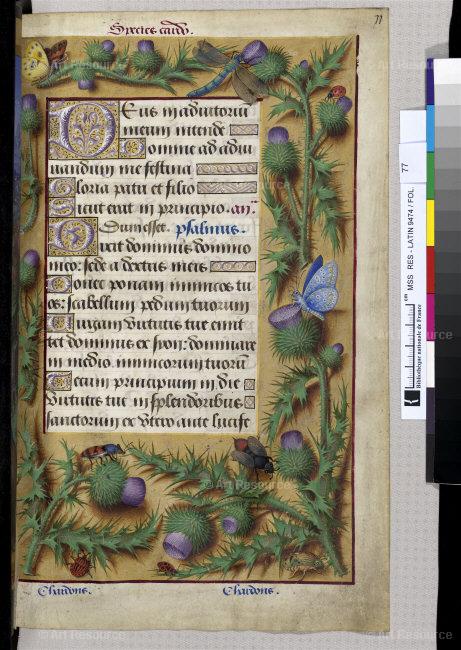 Species cardo.
77
Deus in adiutoriũ
meum intende
Domine ad adiu
uandum me festina
Gloria patri et filio
Sicut erat in principio. an.
Dum esset. psalmus.
Dixit dominus domino
meo: sede a dextris meis
Donec ponam inimicos tu
os: scabellum pedum tuorum
Virgam virtutis tue emit
tet dominus ex syon: dominare
in medio inimicorum tuorum
Tecum principium in die
virtutis tue in splendoribus
sanctorum ex vtero ante lucife
Chardons.
Chardons.
77
MSS RES - LATIN 9474 / FOL.
cm
Bibliothèque nationale de France
© Art Resource
© Art Resource
© Art Resource
© Art Resource